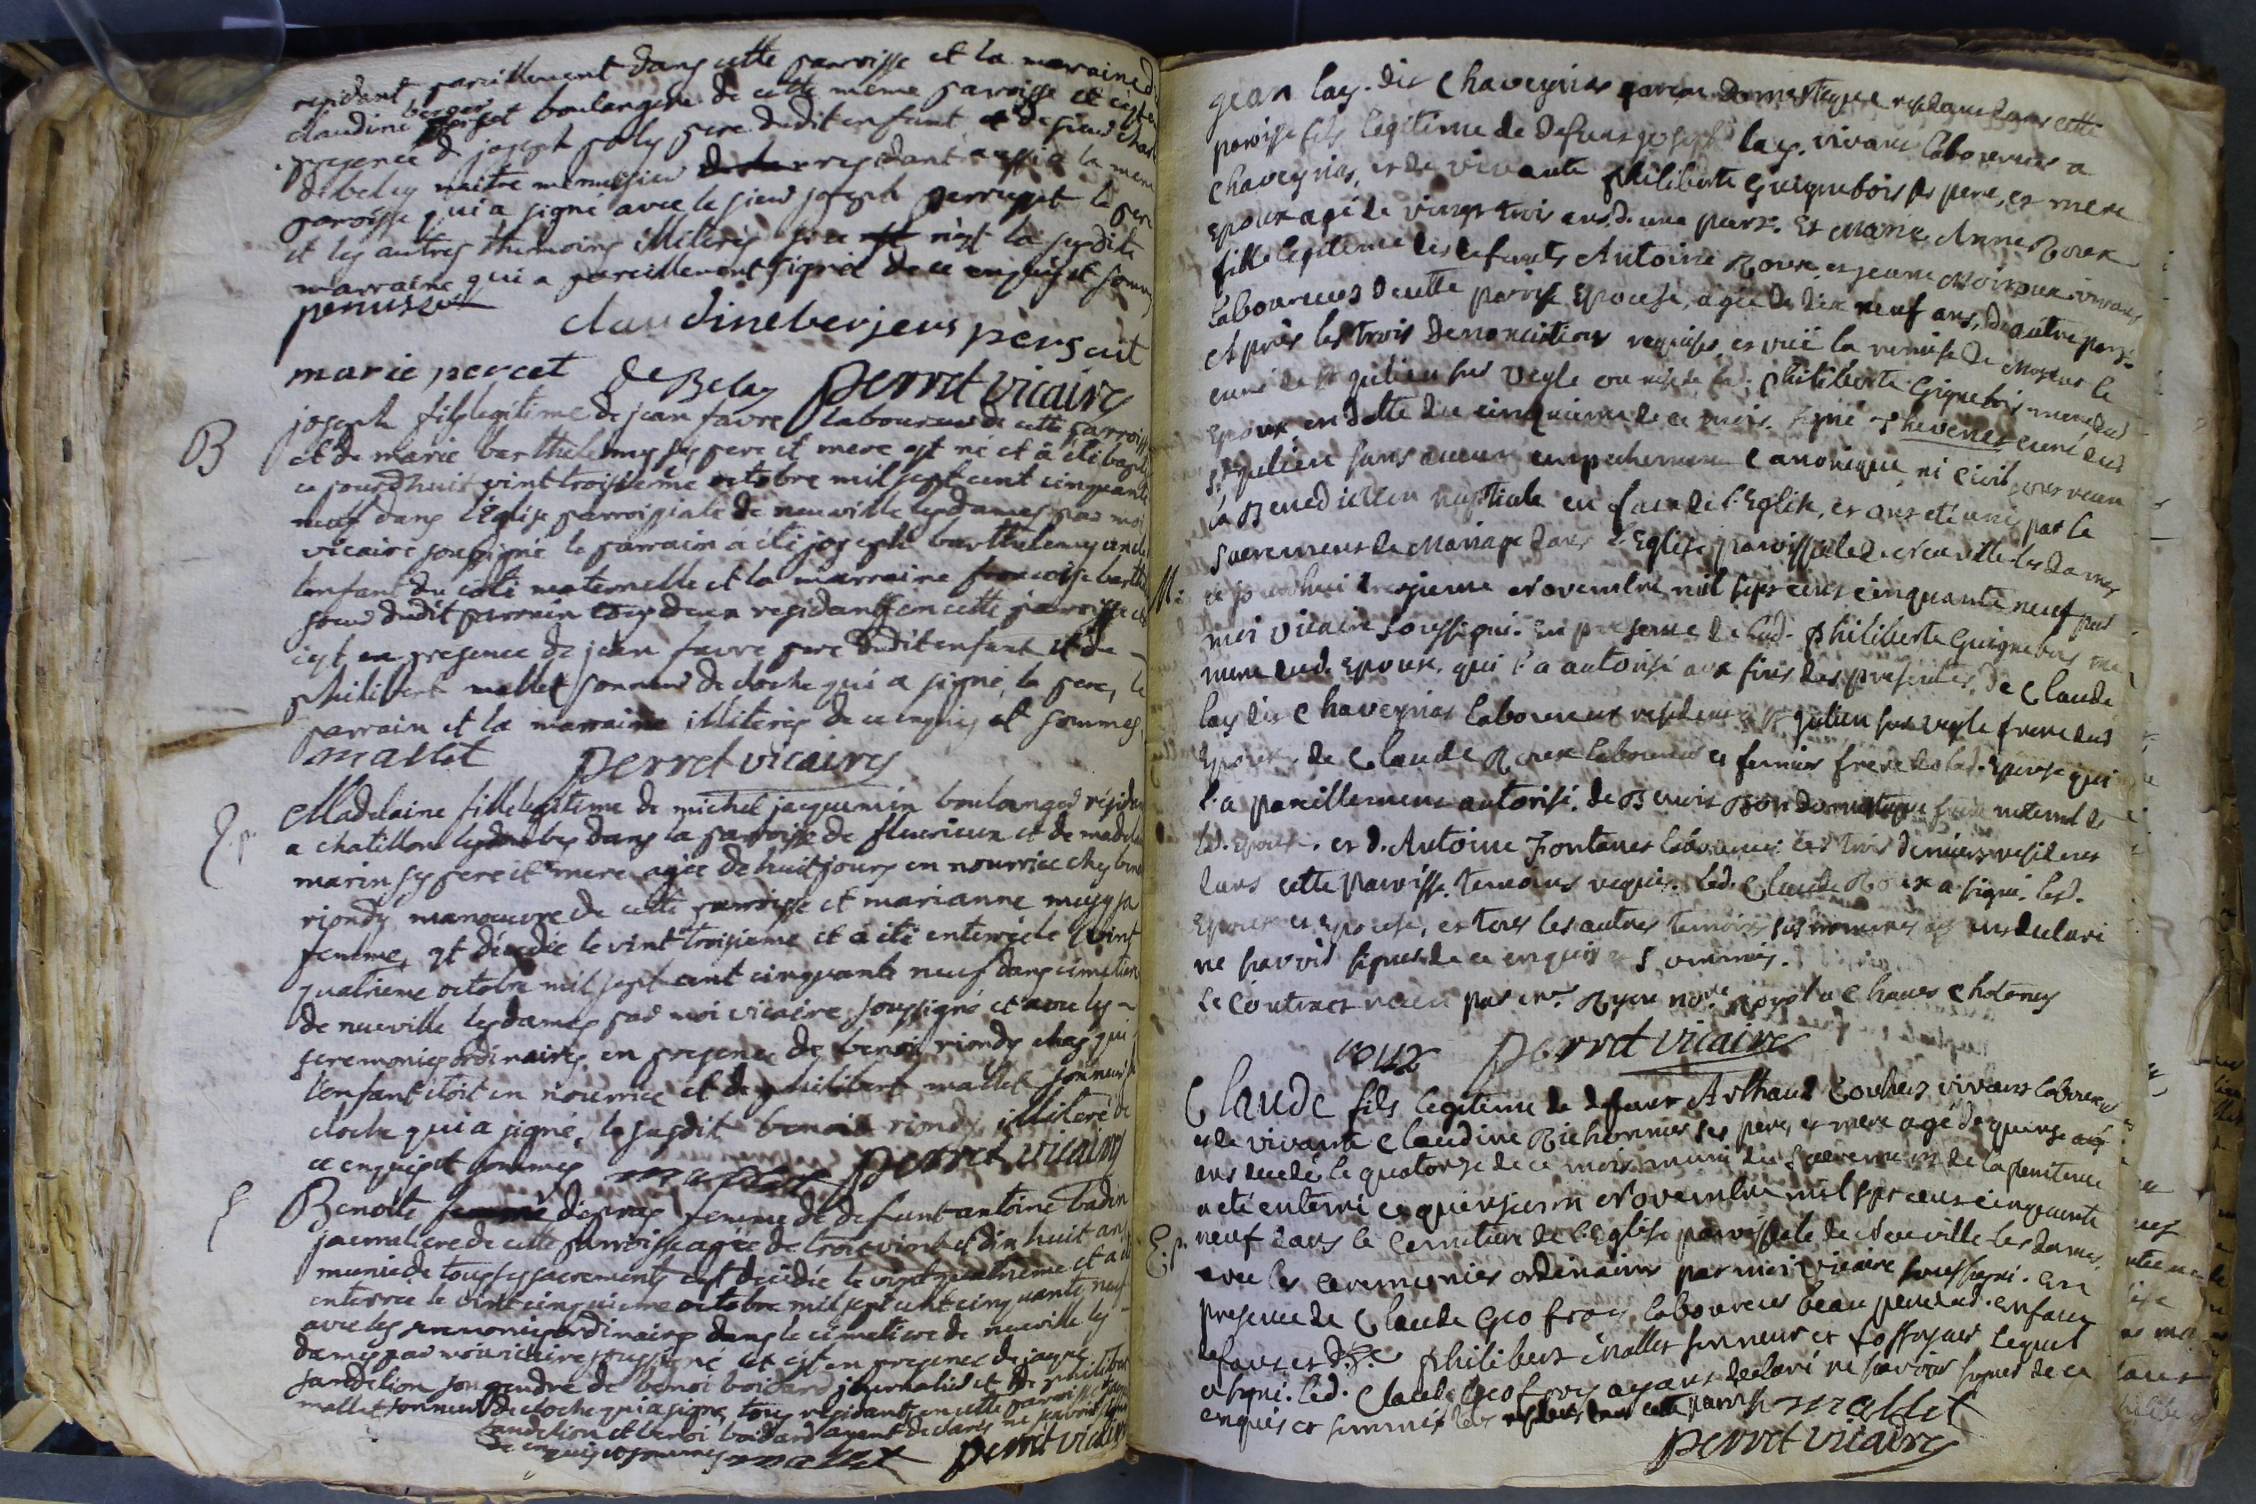 residant pareillement dans cette parroisse et la marraine d
claudine berger et boulangere de cette meme parroisse et c'est en
presence de joseph poly pere dudit enfant et de sieur
debelay maitre menuisier residant aussi a la meme
paroisse qui a signé avec le sieur joseph perrusset le pere
et les autres themoins illiterés si ce n'est la susdite
marraine qui a pareillement signé de ce enquis et sommes
perrusset
claudine berjer
marie percet debelay perret vicaire
B
joseph fils legitime de jean favre laboureur de cette parroisse
et de marie barthelemy ses pere et mere est né et à été baptisé
ce jourdhuit vint troisieme octobre mil sept cent cinquante
neuf dans l'Eglise parroissiale de neuville les dames par moi
vicaire soussigné le parrain à été joseph barthelemy oncle
l'enfant du coté maternelle et la marraine francoise barth
soeur dudit parrain tous deux residants en cette parroisse et
c'est en presence de jean favre pere dudit enfant et de
philibert mallet sonneur de cloche qui a signé, le pere, le
parrain et la marraine illiterés de ce enquis et sommes
mallet perret vicaire
Madelaine fille legitime de michel jacquemin boulanger résidant
a chatillon les dombes dans la parroisse de fleurieux et de madelaine
marin ses pere et mere agée de huit jours en nourrice chez benoit
riondy manoeuvre de cette parroisse et marianne sa
femme, est décedée le vint troisieme et a été enterrée le vint
quatrieme octobre mil sept cent cinquante neuf dans cimetiere
de neuville les dames par moi vicaire soussigné et avec les
seremonies ordinaires en presence de benoit riondy chez qui
l'enfant étoit en nourrice et de philibert mallet sonneur de
cloche qui a signé, le susdit benoit riondy illiteré de
ce enquis et sommes mallet perret vicaire
Benoite femme de defunt antoine badin
journaliere de cette parroisse agée de trois vint et dix huit ans
munie de tous ses sacrements est decédée le vint quatrieme et a été
enterree le vint cinquieme octobre mil sept cent cinquante neuf
avec les seremonies ordinaires dans le cimetiere de neuville les
dames par moi vicaire soussigné et c'est en presence de jaque
jandelion son gendre de benoi boidard journalier et de philibert
mallet sonneur de cloche qui a signe, tous residants en cette parroisse
jandelion et benoi boidard ayant declarés ne savoir signer
de ce enquis et sommes mallet perret vicaire
jean lay. dit Chaveyrias garcon Domestique residant dans cette
paroisse fils legitime de defunt joseph lay. vivant laboureur a
Chaveyrias, et de vivante philiberte Guignebois ses pere, et mere
Epoux agé de vingt trois ans d'une part. Et Marie Anne Roux
fille legitime des defunts Antoine Roux, et jeanne Moiroux vivans
laboureurs de cette paroisse Epouse, agée de dix neuf ans, d'autre part.
Et près les trois denonciations requises, et vuë la remise de Monsieur le
curé de St julien sur Veyle philiberte Guignebois mere dud
Epoux en datte du cinquieme de ce mois. signé Thevenet curé dud
St julien sans aucun empechement Canonique, ni Civil ont recu
la Benediction nuptiale en face de l'Eglise, et ont eté unis par le
M:
Sacrement de Mariage dans l'Eglise paroissiale de Neuville les dames
ce jourdhui Novembre mil sept cent cinquante neuf par
moi vicaire soussigné. En presence de lad. Philiberte Guignebois
mere dud. Epoux, qui l'a autorisé aux fins des presentes, de Claude
lay dit Chaveyrias laboureur resident a St julien sur veyle frere dud
Epoux. de Claude Roux laboureur et fermier frere de lad. Epouse qui
l'a pareillement autorisé. de Benoit Domestique frere maternel de
lad. Epouse. et d. Antoine Fontanet laboureur les trois derniers residents
dans cette Paroisse. temoins requis. led. Claude Roux a signé. lesd.
Epoux et Epouse, et tous les autres temoins susnommés ont declaré
ne savoir signer de ce enquis et sommés.
Le Contract recu par me. notre Royal a Chaves
roux perret vicaire
Claude fils legitime de defunt Arthaud vivant laboureur
et de vivante Claudine ses pere, et mere agé de quinze
ans decedé le quatorze de ce mois muni du Sacrement de la penitence
a eté enterré ce Novembre mil sept cent cinquante
E.p.
neuf dans le Cemetiere de l'Eglise paroissiale de Neuville les dames,
avec les ceremonies ordinaires par moi vicaire soussigné. En
presence de Claude Geofroy laboureur beau pere dud. enfant
defunt et de Philibert Mallet sonneur et fossoyeur lequel
a signé. led. Claude Geofroy ayant declaré ne savoir signer de ce
enquis et sommés tous residents dans cette paroisse mallet
perret vicaire